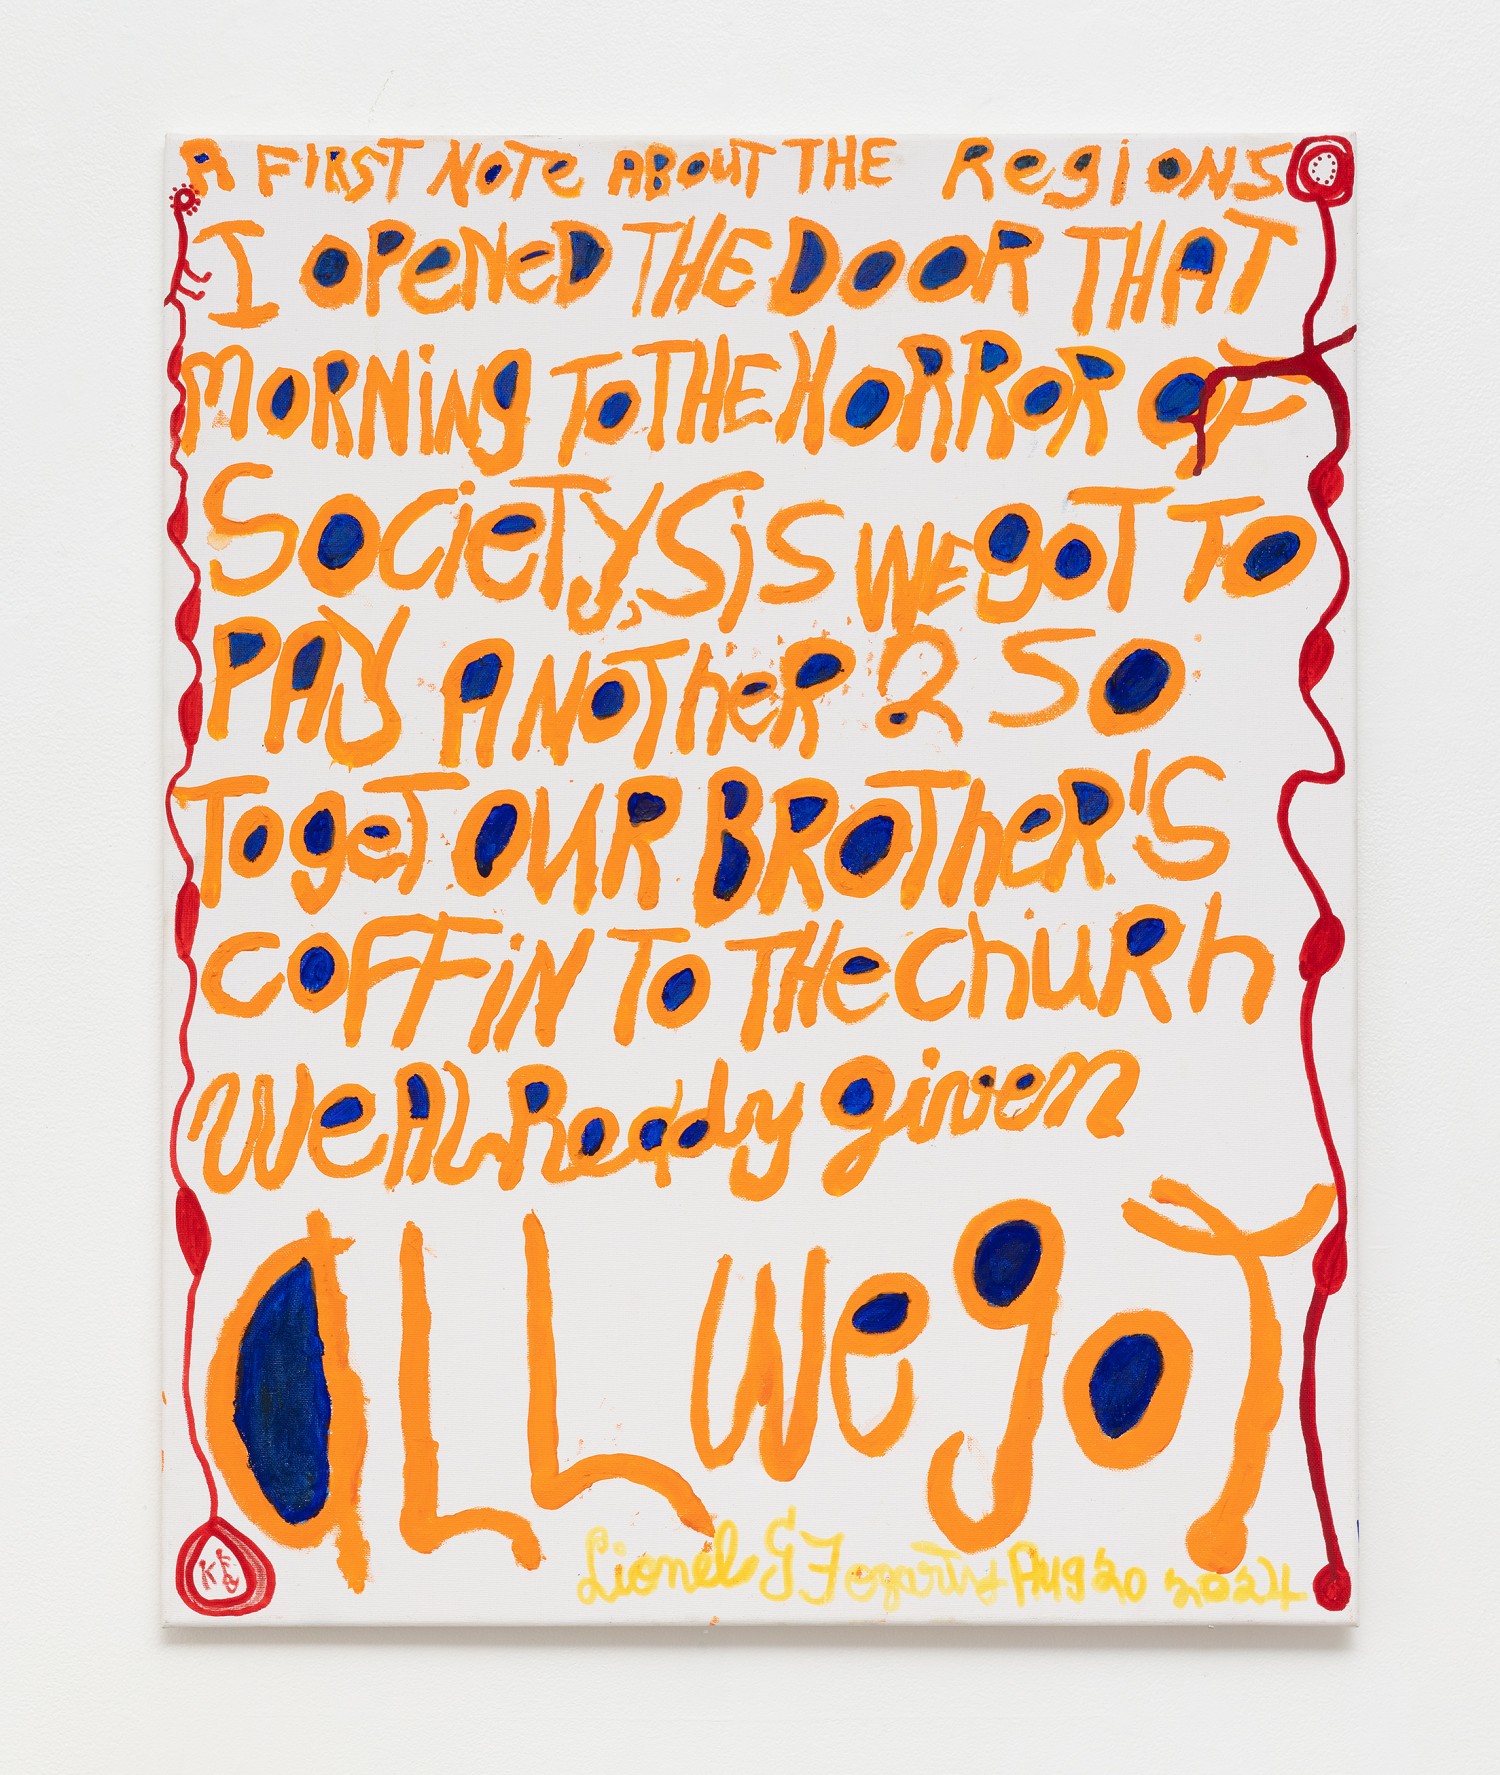 A FIRST NoTe ABOUT THE RegiONS
I OPeNeD THE DOOR THAT
MORNiNg TO THE HORROR OF
SocieTy,S is We goT TO
PAY ANOTheR 2 SO
To geT OUR BROTheR'S
COFFiN To THe ChuRh
We AlReady given
aLL We goT
Lionel G Fogarty Aug 20 2024